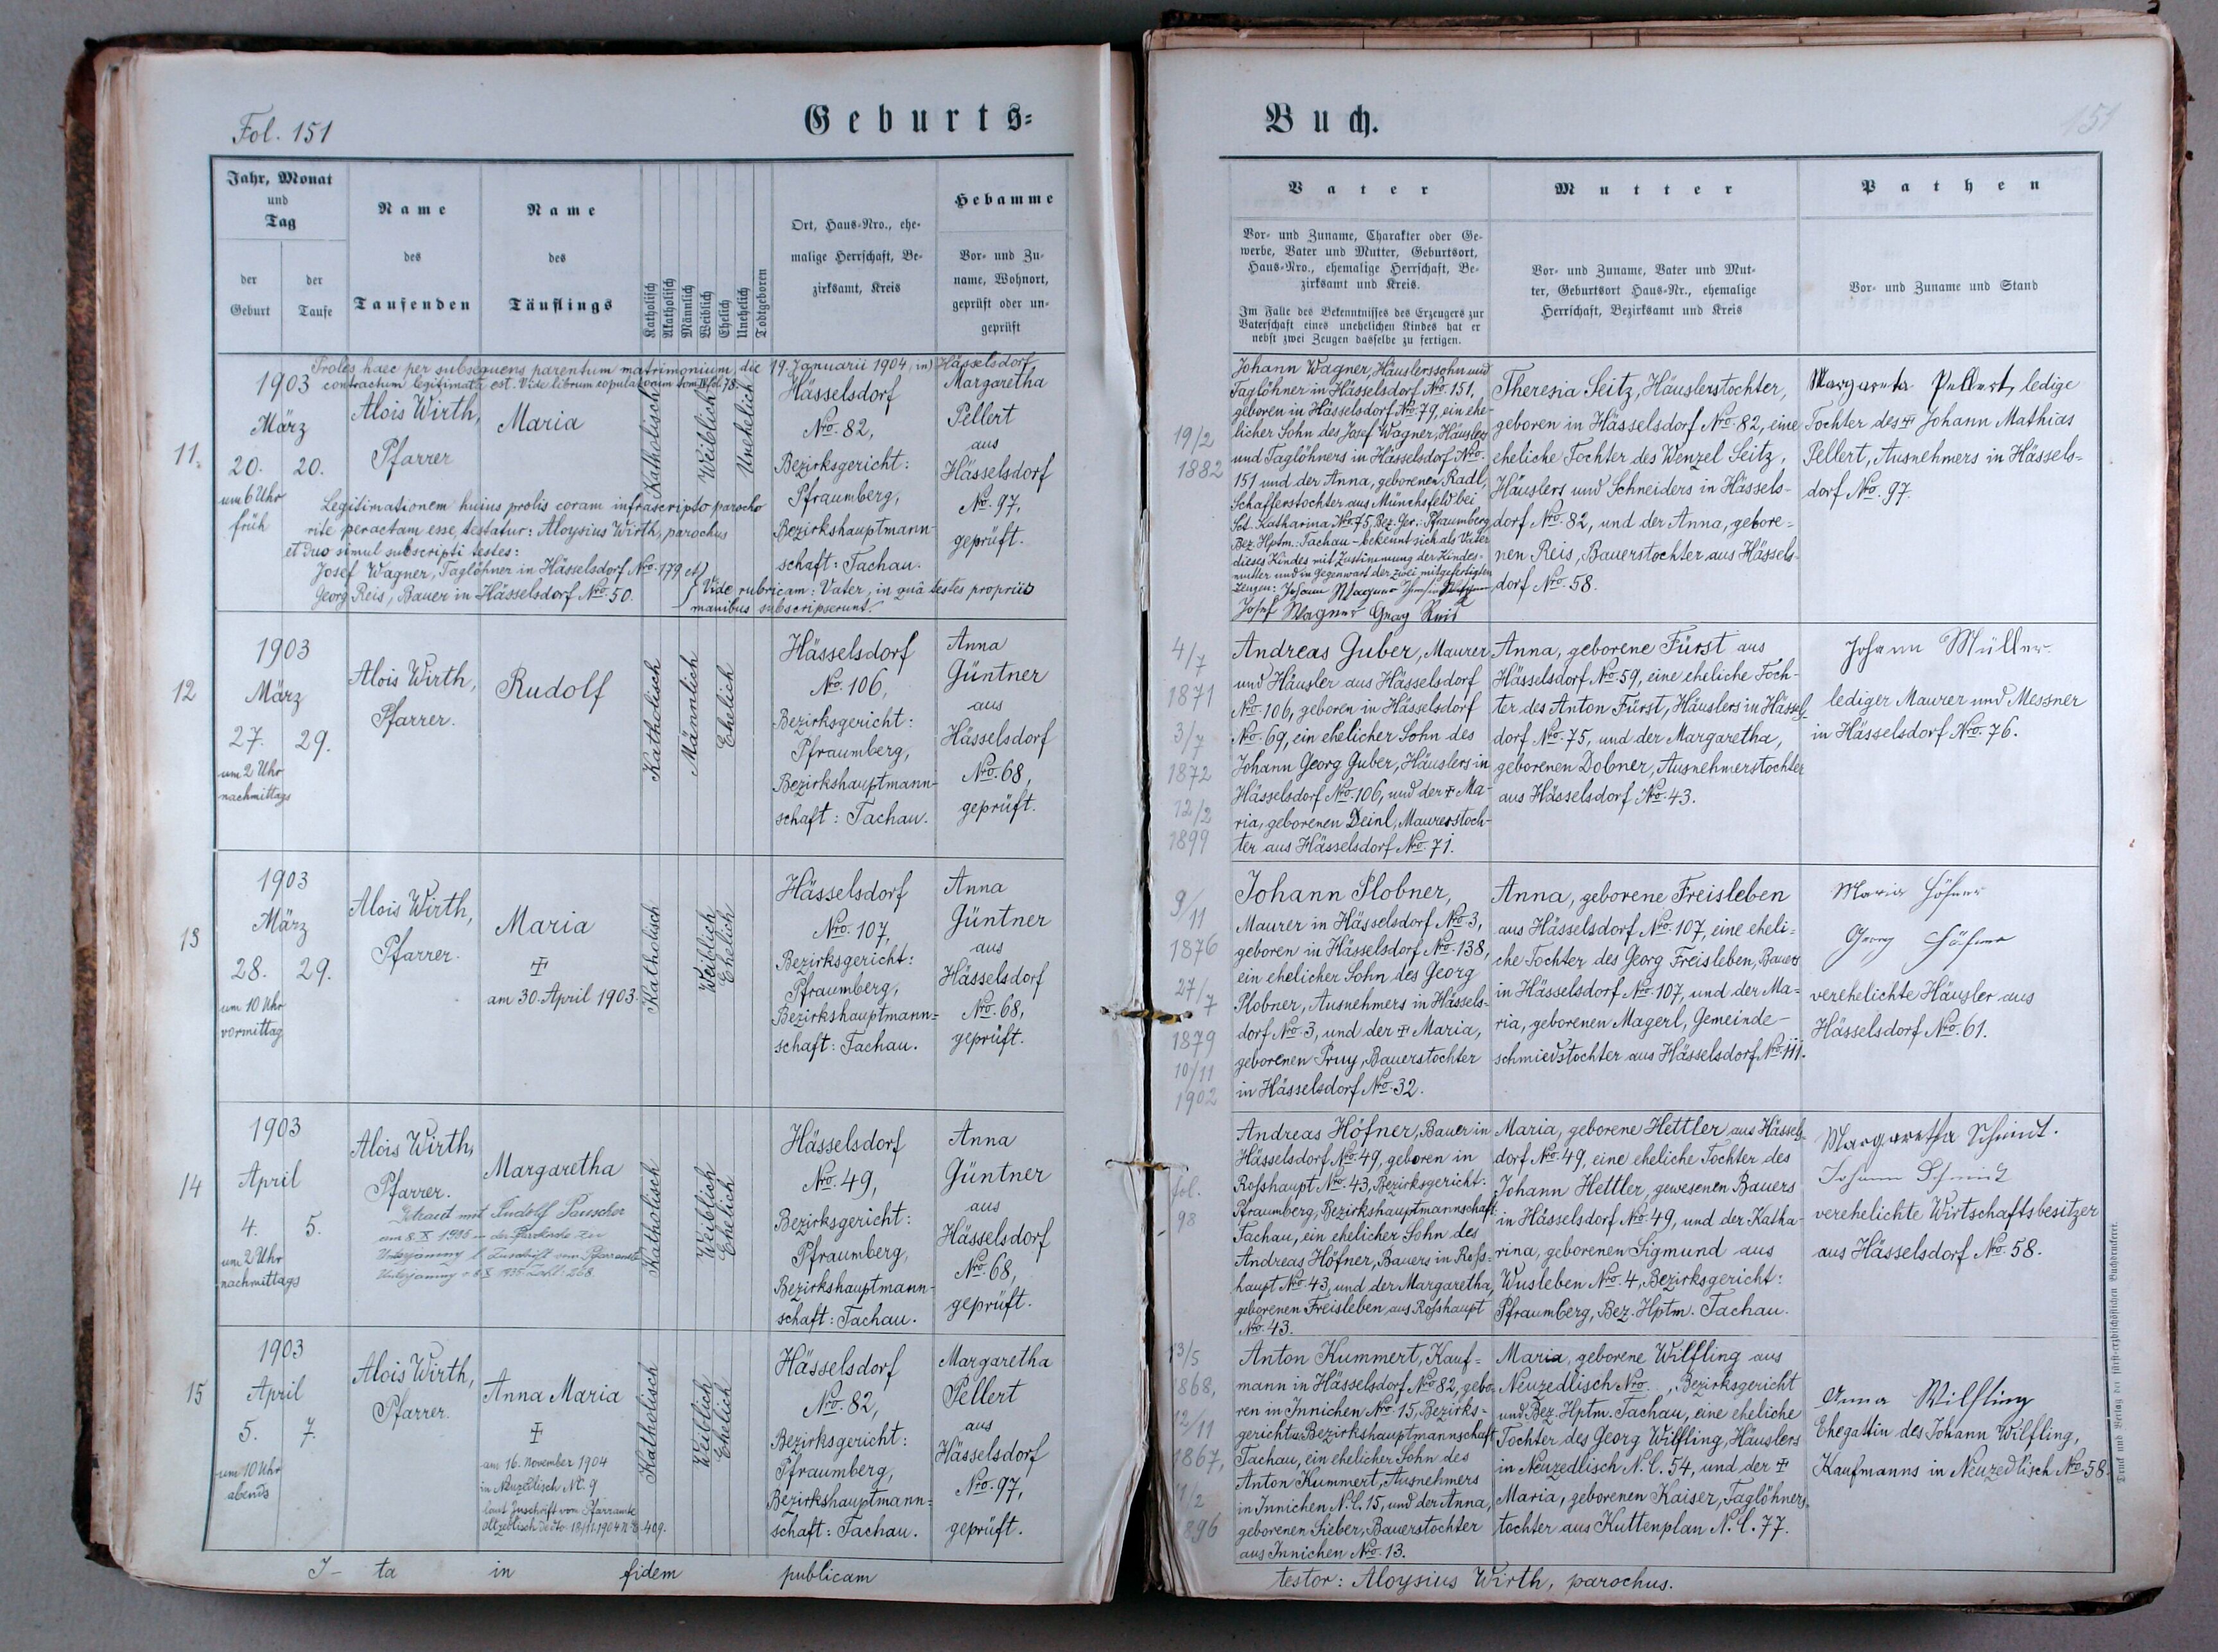 Fol. 151
Geburts=
Jahr, Monat
und
Tag
der
Geburt
der
Taufe
Name
des
Taufenden
Name
des
Täuflings
Katholisch
Akatholisch
Männlich
Weiblich
Ehelich
Unehelich
Todtgeboren
Ort, Haus-Nro., ehe-
malige Herrschaft, Be-
zirksamt, Kreis
Hebamme
Vor- und Zu-
name, Wohnort,
geprüft oder un-
geprüft
Proles haec per subsequens parentum matrimonium, die 19. Januarii 1904, in Hässelsdorf
contractum legitimata est. Vide librum copulatorum tom. II fol. 78.
11.
1903
März
20. 20.
um 6 Uhr
früh
Alois Wirth,
Pfarrer
Maria
Katholisch
Weiblich
Unehelich
Hässelsdorf
Nro. 82,
Bezirksgericht:
Pfraumberg,
Bezirkshauptmann-
schaft: Tachau.
Margaretha
Pellert
aus
Hässelsdorf
No. 97,
geprüft.
Legitimationem huius prolis coram infrascripto parocho
rite peractam esse, testatur: Aloysius Wirth, parochus
et duo simul subscripti testes:
Josef Wagner, Taglöhner in Hässelsdorf Nro. 179 et
Georg Reis, Bauer in Hässelsdorf Nro. 50.
Vide rubricam: Vater, in quâ testes propriis
manibus subscripserunt.
12
1903
März
27. 29.
um 2 Uhr
nachmittags
Alois Wirth,
Pfarrer.
Rudolf
Katholisch
Männlich
Ehelich
Hässelsdorf
No. 106,
Bezirksgericht:
Pfraumberg,
Bezirkshauptmann-
schaft: Tachau.
Anna
Güntner
aus
Hässelsdorf
Nro. 68,
geprüft.
13
1903
März
28. 29.
um 10 Uhr
vormittag
Alois Wirth,
Pfarrer.
Maria
✝
am 30. April 1903.
Katholisch
Weiblich
Ehelich
Hässelsdorf
Nro. 107,
Bezirksgericht:
Pfraumberg,
Bezirkshauptmann=
schaft: Tachau.
Anna
Güntner
aus
Hässelsdorf
No. 68,
geprüft.
14
1903
April
4. 5.
um 2 Uhr
nachmittags
Alois Wirth,
Pfarrer.
Margaretha
Getraut mit Rudolf Pauscher
am 8. X 1935 in der Pfarrkirche zu
Unterjamny l. Zuschrift vom Pfarramte
Unterjamny v. 8.X. 1935 Zahl: 268.
Katholisch
Weiblich
Ehelich
Hässelsdorf
No. 49,
Bezirksgericht:
Pfraumberg,
Bezirkshauptmann-
schaft: Tachau.
Anna
Güntner
aus
Hässelsdorf
No. 68,
geprüft.
15
1903
April
5. 7.
um 10 Uhr
abends
Alois Wirth,
Pfarrer.
Anna Maria
✝
am 16. November 1904
in Neuzedlisch Nc. 9
laut Zuschrift vom Pfarramte
Altzedlisch de dto. 18/11. 1904 No. 409.
Katholisch
Weiblich
Ehelich
Hässelsdorf
No. 82,
Bezirksgericht:
Pfraumberg,
Bezirkshauptmann=
schaft: Tachau.
Margaretha
Pellert
aus
Hässelsdorf
No. 97,
geprüft.
I- ta in fidem publicam
Buch.
151
Vater
Vor- und Zuname, Charakter oder Ge-
werbe, Vater und Mutter, Geburtsort,
Haus-Nro., ehemalige Herrschaft, Be-
zirksamt und Kreis.
Im Falle des Bekenntnisses des Erzeugers zur
Vaterschaft eines unehelichen Kindes hat er
nebst zwei Zeugen dasselbe zu fertigen.
Mutter
Vor- und Zuname, Vater und Mut-
ter, Geburtsort Haus-Nr., ehemalige
Herrschaft, Bezirksamt und Kreis
Pathen
Vor- und Zuname und Stand
19/2
1882
Johann Wagner, Häuslerssohn und
Taglöhner in Hässelsdorf No. 151,
geboren in Hässelsdorf No. 79, ein ehe-
licher Sohn des Josef Wagner, Häuslers
und Taglöhners in Hässelsdorf No.
151 und der Anna, geborenen Radl,
Schafferstochter aus Münchsfeld bei
Sct. Katharina, No. 75, Bez. Ger.: Pfraumberg,
Bez. Hptm.: Tachau - bekennt sich als Vater
dieses Kindes mit Zustimmung der Kindes-
mutter und in Gegenwart der zwei mitgefertigten
Zeugen: Johann Wagner
Josef Wagner Georg Reis
Theresia Seitz, Häuslerstochter,
geboren in Hässelsdorf No. 82, eine
eheliche Tochter des Wenzel Seitz,
Häuslers und Schneiders in Hässels-
dorf No. 82, und der Anna, gebore=
nen Reis, Bauerstochter aus Hässels-
dorf No. 58.
Margareta Pellert, ledige
Tochter des ✝ Johann Mathias
Pellert, Ausnehmers in Hässels=
dorf No. 97.
4/7
1871
3/7
1872
12/2
1899
Andreas Guber, Maurer
und Häusler aus Hässelsdorf
No. 106, geboren in Hässelsdorf
No. 69, ein ehelicher Sohn des
Johann Georg Guber, Häuslers in
Hässelsdorf No. 106, und der ✝ Ma-
ria, geborenen Deinl, Maurerstoch-
ter aus Hässelsdorf No. 71.
Anna, geborene Fürst aus
Hässelsdorf No. 59, eine eheliche Toch-
ter des Anton Fürst, Häuslers in Hässels-
dorf No. 75, und der Margaretha,
geborenen Dobner, Ausnehmerstochter
aus Hässelsdorf No. 43.
Johann Müller
lediger Maurer und Messner
in Hässelsdorf Nro. 76.
9/11
1876
27/7
1879
10/11
1902
Johann Plobner,
Maurer in Hässelsdorf No. 3,
geboren in Hässelsdorf No. 138,
ein ehelicher Sohn des Georg
Plobner, Ausnehmers in Hässels-
dorf No. 3, und der ✝ Maria,
geborenen Pruy, Bauerstochter
in Hässelsdorf No. 32.
Anna, geborene Freisleben
aus Hässelsdorf No. 107, eine eheli=
che Tochter des Georg Freisleben, Bauers
in Hässelsdorf No. 107, und der Ma=
ria, geborenen Magerl, Gemeinde-
schmiedstochter aus Hässelsdorf No. 111.
Maria Höfner
Georg Höfner
verehelichte Häusler aus
Hässelsdorf No. 61.
fol.
98
Andreas Höfner, Bauer in
Hässelsdorf No. 49, geboren in
Rosshaupt No. 43, Bezirksgericht:
Pfraumberg, Bezirkshauptmannschaft
Tachau, ein ehelicher Sohn des
Andreas Höfner, Bauers in Ross-
haupt No. 43, und der Margaretha,
geborenen Freisleben, aus Rosshaupt
No. 43.
Maria, geborene Hettler aus Hässels-
dorf No. 49, eine eheliche Tochter des
Johann Hettler, gewesenen Bauers
in Hässelsdorf No. 49, und der Katha-
rina, geborenen Sigmund aus
Wusleben No. 4, Bezirksgericht:
Pfraumberg, Bez. Hptm. Tachau.
Margaretha Schmidt.
Johann Schmidt
verehelichte Wirtschaftsbesitzer
aus Hässelsdorf No. 58.
13/5
1868,
12/11
1867,
1/2
896
Anton Kummert, Kauf=
mann in Hässelsdorf No. 82, gebo-
ren in Innichen No. 15, Bezirks=
gericht u. Bezirkshauptmannschaft
Tachau, ein ehelicher Sohn des
Anton Kummert, Ausnehmers
in Innichen N. C. 15, und der Anna,
geborenen Sieber, Bauerstochter
aus Innichen No. 13.
Maria, geborene Wilfling aus
Neuzedlisch No. , Bezirksgericht
und Bez. Hptm. Tachau, eine eheliche
Tochter des Georg Wilfling, Häuslers
in Neuzedlisch N. C. 54, und der ✝
Maria, geborenen Kaiser, Taglöhners-
tochter aus Kuttenplan N. C. 77.
Anna Wilfling
Ehegattin des Johann Wilfling,
Kaufmanns in Neuzedlisch No. 58.
testor: Aloysius Wirth, parochus.
Druck und Verlag der fürst-erzbischöflichen Buchdruckerei.